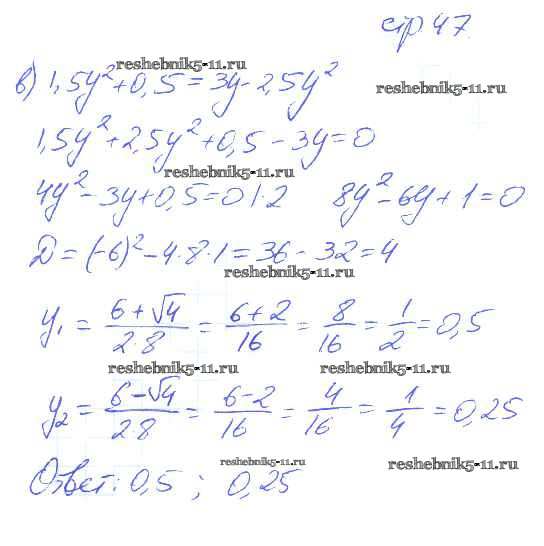 стр 47.
reshebnik5-11.ru
в) 1,5y² + 0,5 = 3y - 2,5y²
reshebnik5-11.ru
1,5y² + 2,5y² + 0,5 - 3y = 0
reshebnik5-11.ru
4y² - 3y + 0,5 = 0 |·2 8y² - 6y + 1 = 0
D = (-6)² - 4·8·1 = 36 - 32 = 4
reshebnik5-11.ru
y₁ = (6 + √4)/(2·8) = (6 + 2)/16 = 8/16 = 1/2 = 0,5
reshebnik5-11.ru reshebnik5-11.ru
y₂ = (6 - √4)/(2·8) = (6 - 2)/16 = 4/16 = 1/4 = 0,25
reshebnik5-11.ru reshebnik5-11.ru
Ответ: 0,5 ; 0,25